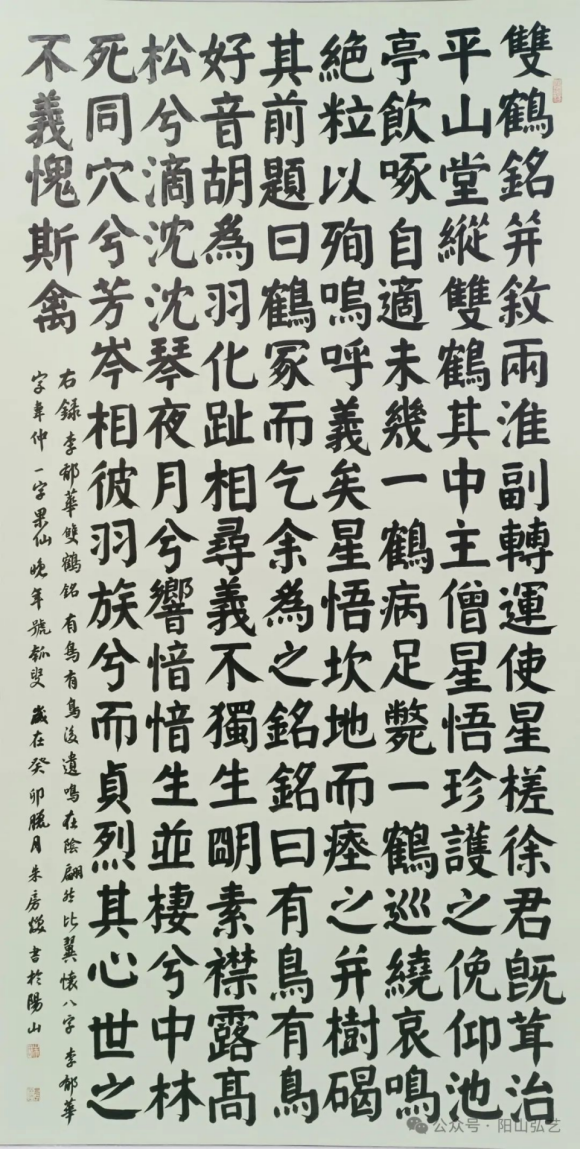 雙鶴銘并敘兩淮副轉運使星槎徐君既葺治
平山堂縱雙鶴其中主僧星悟珍護之俛仰池
亭飲啄自適未幾一鶴病足斃一鶴巡繞哀鳴
絕粒以殉嗚呼義矣星悟坎地而瘞之并樹碣
其前題曰鶴冢而乞余為之銘銘曰有鳥有鳥
好音胡為羽化趾相尋義不獨生明素襟露高
松兮滴沈沈琴夜月兮響愔愔生並棲兮中林
死同穴兮芳岑相彼羽族兮而貞烈其心世之
不義愧斯禽
右錄李郁華雙鶴銘有鳥有鳥後遺鳴在陰翩然比翼懷八字李郁華
字韋仲一字果仙晚年號瓠叟歲在癸卯臘月朱房煖書於陽山
公众号·阳山弘艺